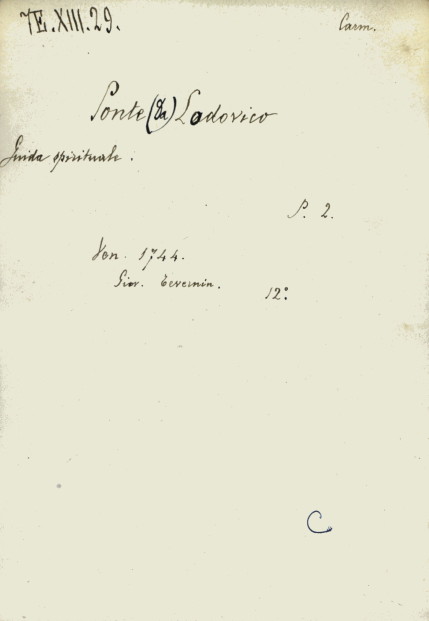 7E.XIII.29.
Carm.
Ponte (da) Lodovico
Guida spirituale.
P. 2.
Ven. 1744.
Giov. Tevernin.
12°
C.